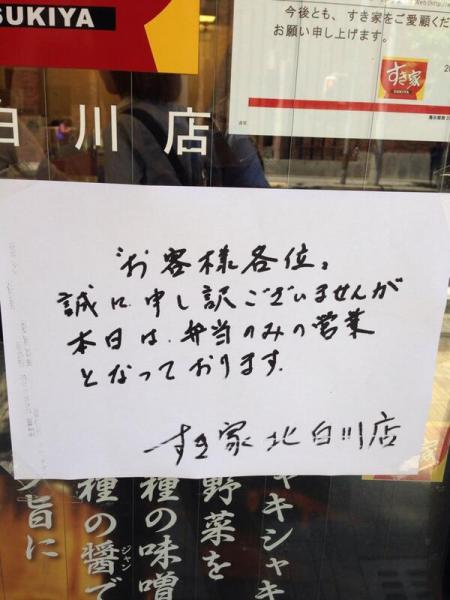 SUKIYA
白川店
今後とも、すき家をご愛顧くだ
お願い申し上げます。
すき家
SUKIYA
お客様各位。
誠に申し訳ございませんが
本日は、弁当のみの営業
となっております。
すき家 北白川店
シャキシャキ
野菜を
種の味噌
種の醤で
ジャン
旨に